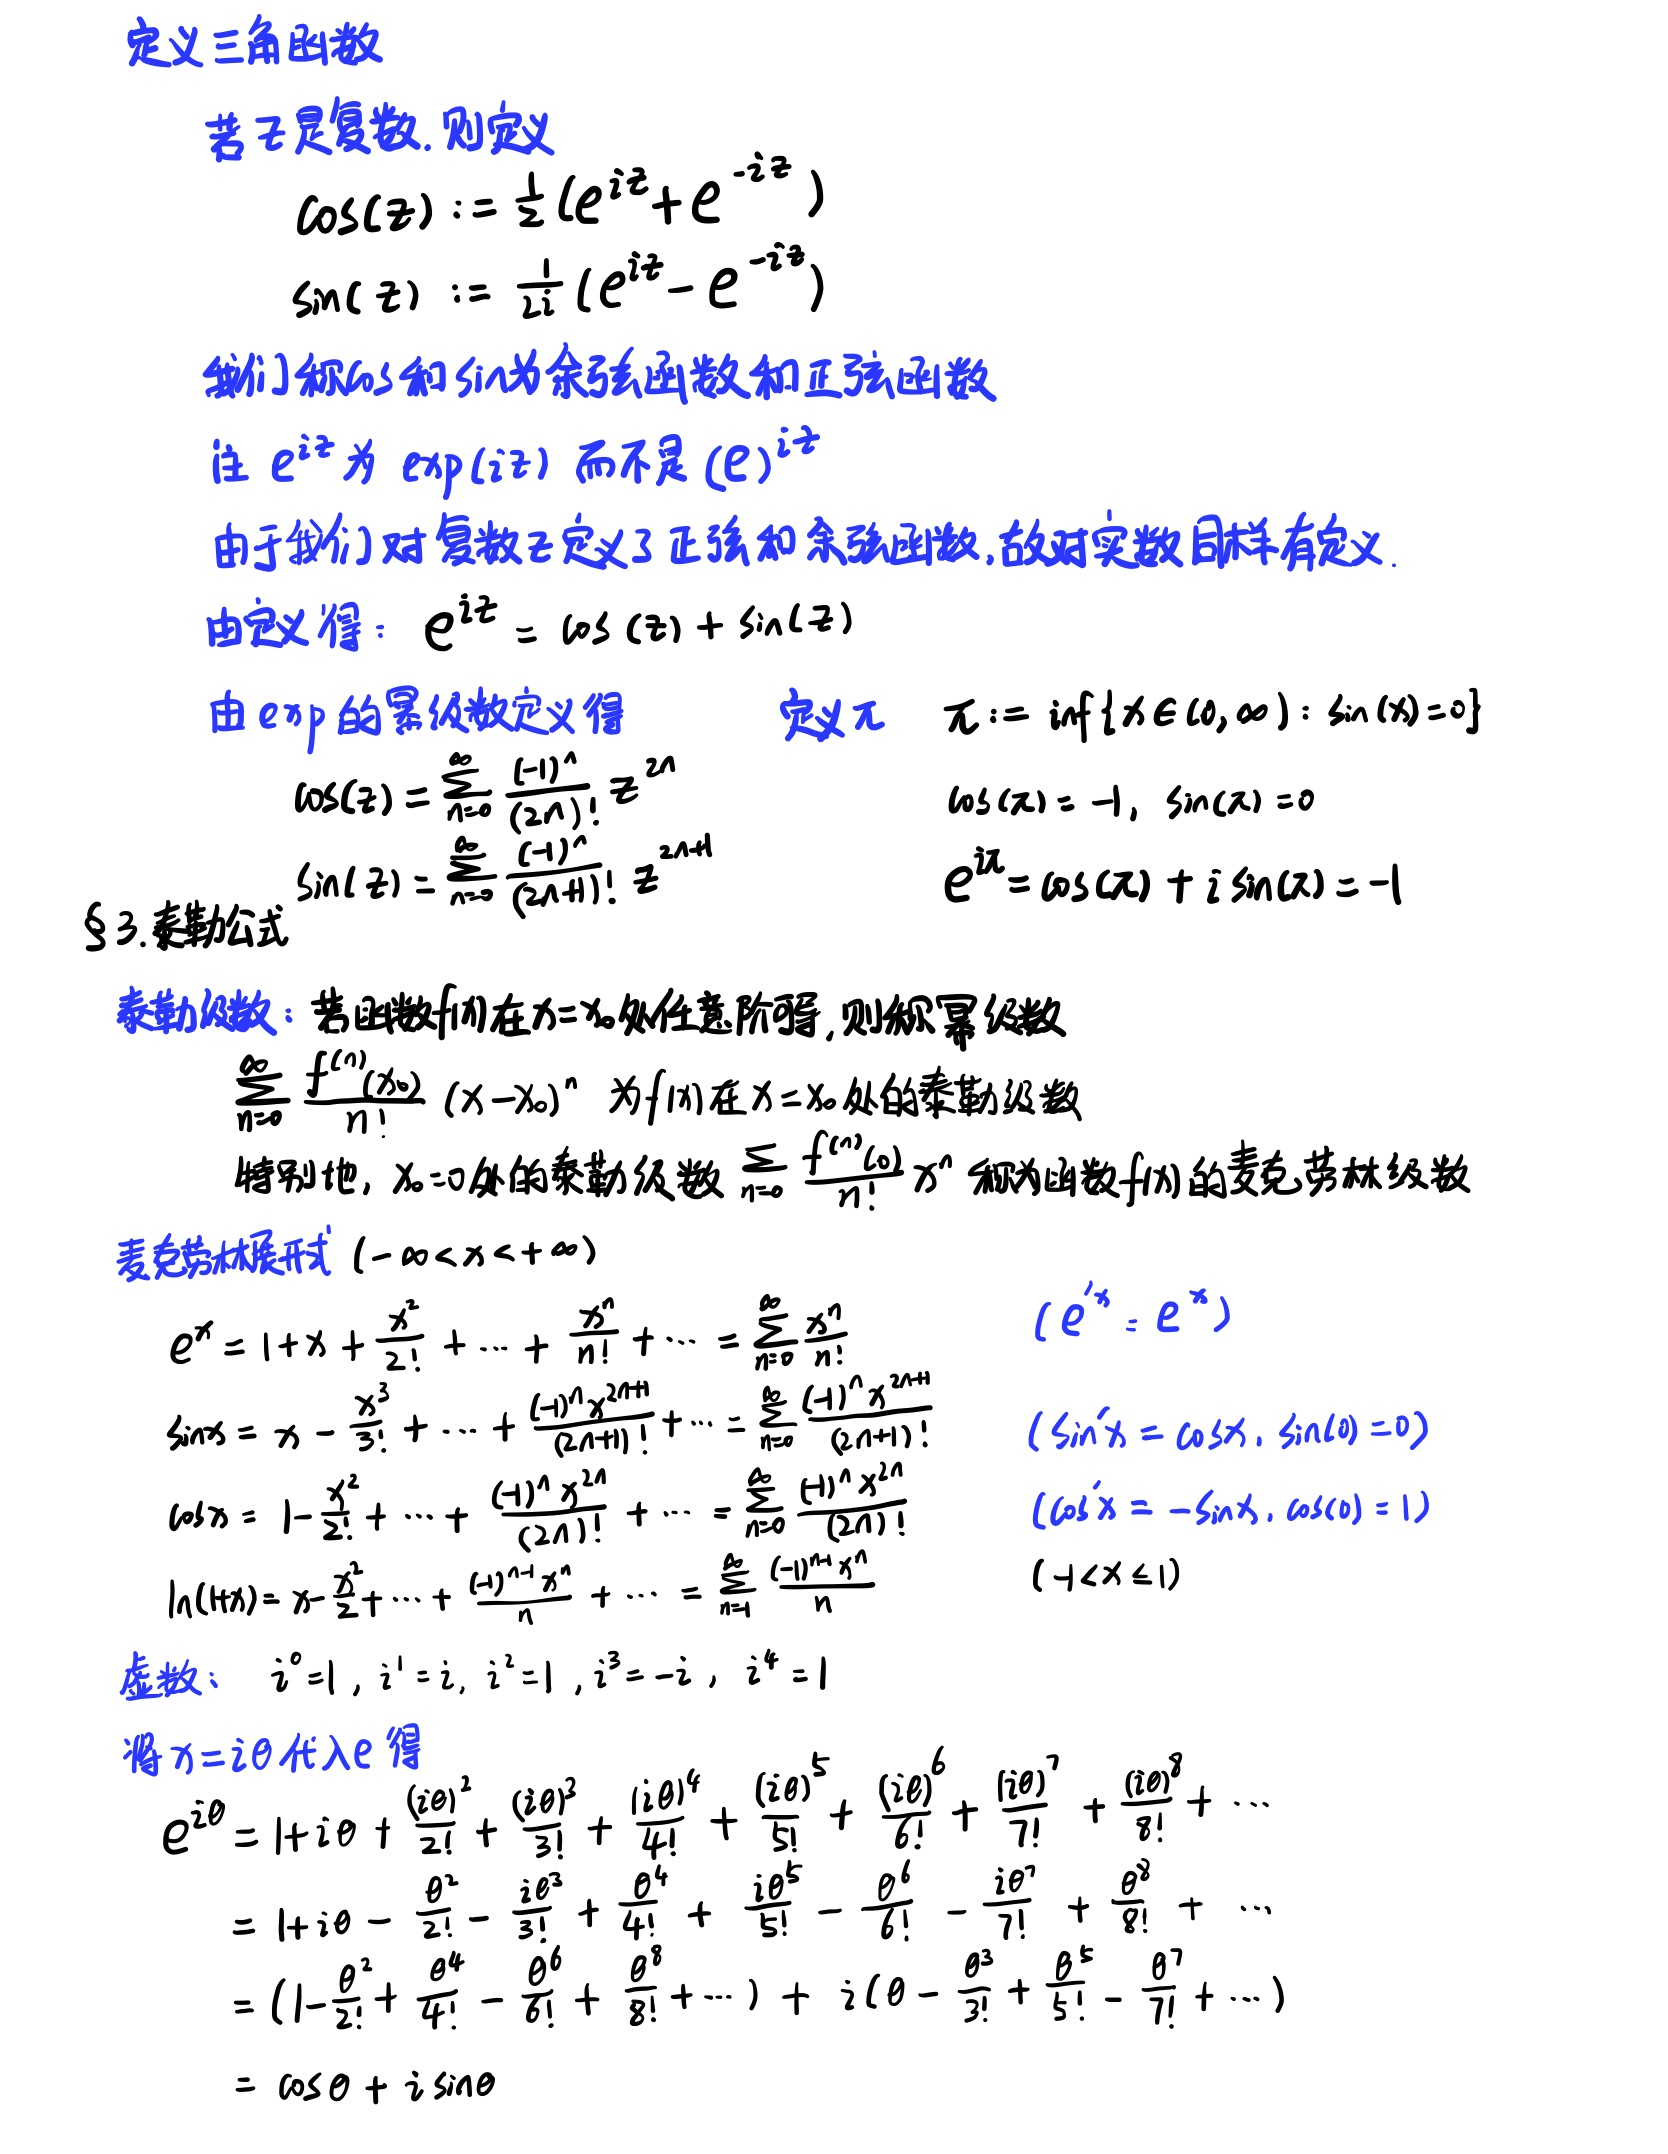 定义三角函数
若z是复数.则定义
cos(z) := 1/2 (e^{iz} + e^{-iz})
sin(z) := 1/2i (e^{iz} - e^{-iz})
我们称cos和sin为余弦函数和正弦函数
注 e^{iz} 为 exp(iz) 而不是 (e)^{iz}
由于我们对复数z定义了正弦和余弦函数,故对实数同样有定义.
由定义得: e^{iz} = cos(z) + sin(z)
由exp的幂级数定义得
cos(z) = ∑_{n=0}^{∞} (-1)^n/(2n)! z^{2n}
sin(z) = ∑_{n=0}^{∞} (-1)^n/(2n+1)! z^{2n+1}
定义π π := inf{x∈(0,∞): sin(x)=0}
cos(π) = -1, sin(π) = 0
e^{iπ} = cos(π) + i sin(π) = -1
§3.泰勒公式
泰勒级数: 若函数f(x)在x=x₀处任意阶可导,则称幂级数
∑_{n=0}^{∞} f^{(n)}(x₀)/n! (x-x₀)^n 为f(x)在x=x₀处的泰勒级数
特别地, x₀=0处的泰勒级数 ∑_{n=0} f^{(n)}(0)/n! x^n 称为函数f(x)的麦克劳林级数
麦克劳林展开式 (-∞<x<+∞)
e^x = 1+x+ x^2/2! + ... + x^n/n! + ... = ∑_{n=0}^{∞} x^n/n! (e'^x = e^x)
sinx = x - x^3/3! + ... + (-1)^n x^{2n+1}/(2n+1)! + ... = ∑_{n=0}^{∞} (-1)^n x^{2n+1}/(2n+1)! (sin'x = cosx, sin(0)=0)
cosx = 1 - x^2/2! + ... + (-1)^n x^{2n}/(2n)! + ... = ∑_{n=0}^{∞} (-1)^n x^{2n}/(2n)! (cos'x = -sinx, cos(0)=1)
ln(1+x) = x - x^2/2 + ... + (-1)^{n-1} x^n/n + ... = ∑_{n=1}^{∞} (-1)^{n-1} x^n/n (-1<x≤1)
虚数: i^0=1, i^1=i, i^2=1, i^3=-i, i^4=1
将x=iθ代入e得
e^{iθ} = 1+iθ + (iθ)^2/2! + (iθ)^3/3! + (iθ)^4/4! + (iθ)^5/5! + (iθ)^6/6! + (iθ)^7/7! + (iθ)^8/8! + ...
= 1+iθ - θ^2/2! - iθ^3/3! + θ^4/4! + iθ^5/5! - θ^6/6! - iθ^7/7! + θ^8/8! + ...
= (1 - θ^2/2! + θ^4/4! - θ^6/6! + θ^8/8! + ...) + i(θ - θ^3/3! + θ^5/5! - θ^7/7! + ...)
= cosθ + i sinθ